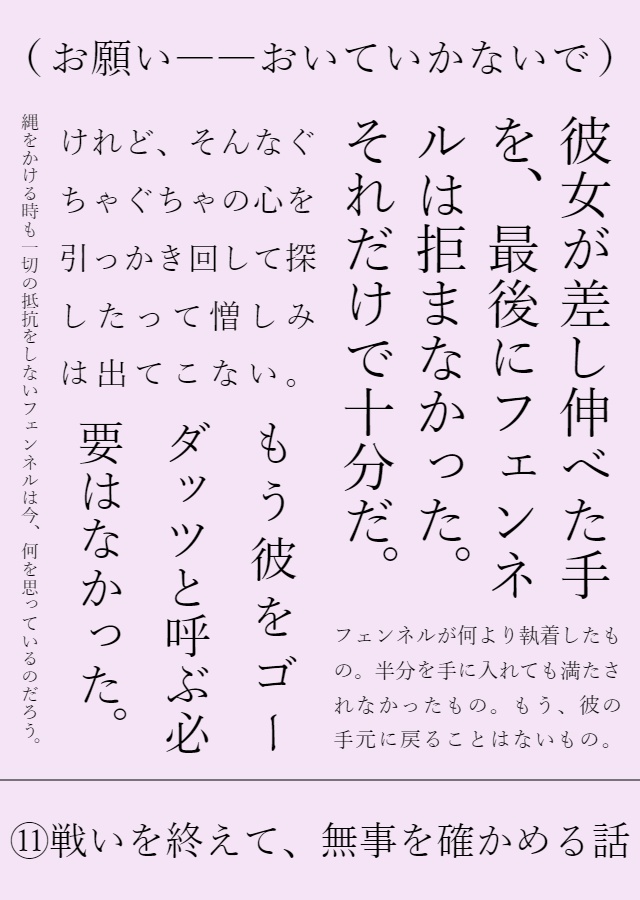 （お願い――おいていかないで）
彼女が差し伸べた手
を、最後にフェンネ
ルは拒まなかった。
それだけで十分だ。
けれど、そんなぐ
ちゃぐちゃの心を
引っかき回して探
したって憎しみ
は出てこない。
縄をかける時も一切の抵抗をしないフェンネルは今、何を思っているのだろう。
フェンネルが何より執着したも
の。半分を手に入れても満たさ
れなかったもの。もう、彼の
手元に戻ることはないもの。
もう彼をゴー
ダッツと呼ぶ必
要はなかった。
⑪戦いを終えて、無事を確かめる話